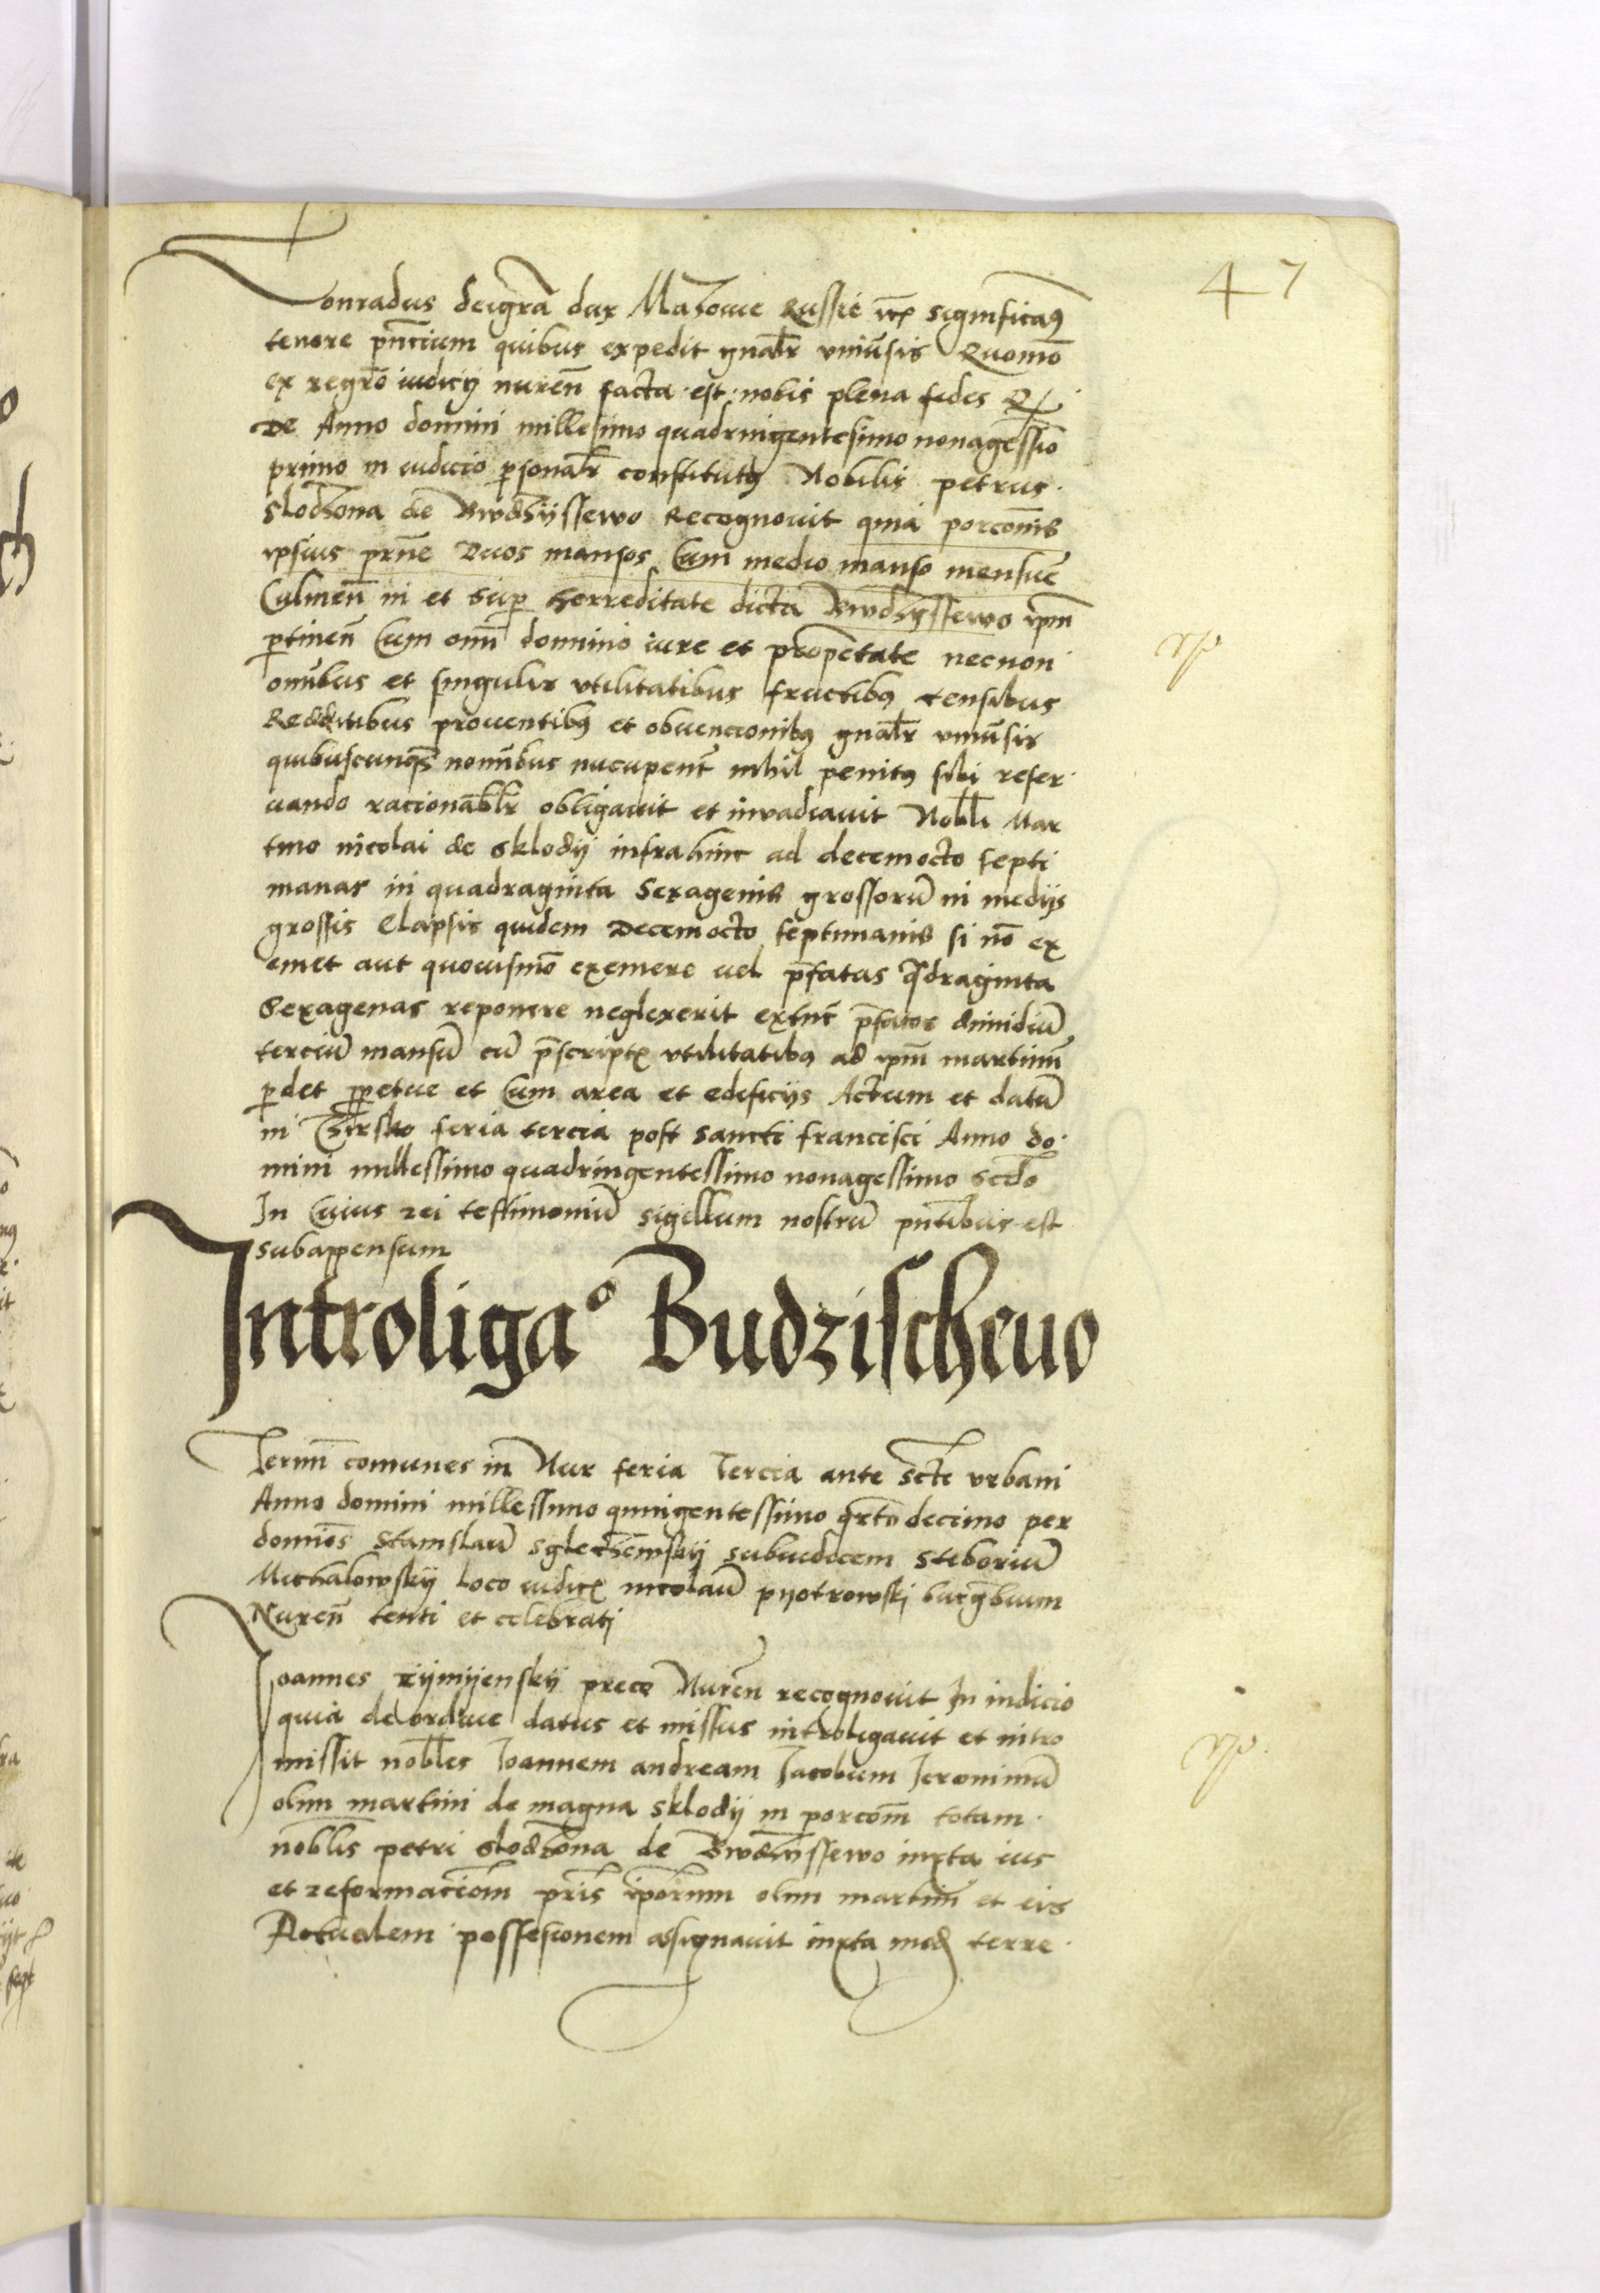 47
Conradus deigra dux Mazovie Russie etc significamus
tenore pntium quibus expedit gnalr universis Quomo
ex regro iudicij nuren facta · est · nobis plena fides Q
De Anno domini millesimo quadringentesimo nonagessio
primo in iudicio psonalr constitutus Nobilis petrus ·
Slodzona de Bwdzijssewo Recognovit quia porconis
ipsius prne Duos mansos Cum medio manso mensure
Culmen in et Sup herreditate dicta Bwdzyssewo ipm
ptinen Cum omi dominio iure et proprietate necnon
omibus et singulis utilitatibus fructibus censibus
Redditibus proventibus et obvencionibus gnalr universis
quibuscunque nomibus nucupent nihil penitus sibi reser
vando racionablr obligavit et invadiavit Nobli Mar
tino nicolai de sklody infrahinc ad decemocto septi
manas in quadraginta Sexagenis grossoru in medijs
grossis Elapsis quidem Decemocto septimanis si no ex
emet aut quovismo exemere vel pfatas qdraginta
Sexagenas reponere neglexerit extunc pfatos dimidiu
terciu mansu cu pscriptis utilitatibus ad ipm martinu
pdet ppetue et Cum area et edificijs Actum et datu
in Czirsko feria tercia post Sancti francisci Anno do
mini millessimo quadringentessimo nonagessimo scdo
In Cuius rei testimoniu sigillum nostru pntibus est
subappensum
Introliga° Budzischevo
Termi comunes in Nur feria Tercia ante scti urbani
Anno domini millessimo quingentessimo qrto decimo per
domios Stanislau subiudicem Stiboriu
Michalowskij loco iudicis nicolau pijotrowskj burgbium
Nuren tenti et celebratj
Joannes preco Nuren recognovit In iudicio
quia de ordiue datus et missus introligavit et intro
missit nobles Joannem andream Jacobum Jeronimu
olim martini de magna sklody in porcom totam ·
noblis petri slodzona de Bwdzyssewo iuxta ius
et reformaciom pris ipsorum olim martini et eis
Actualem possesionem assignavit iuxta terre ·